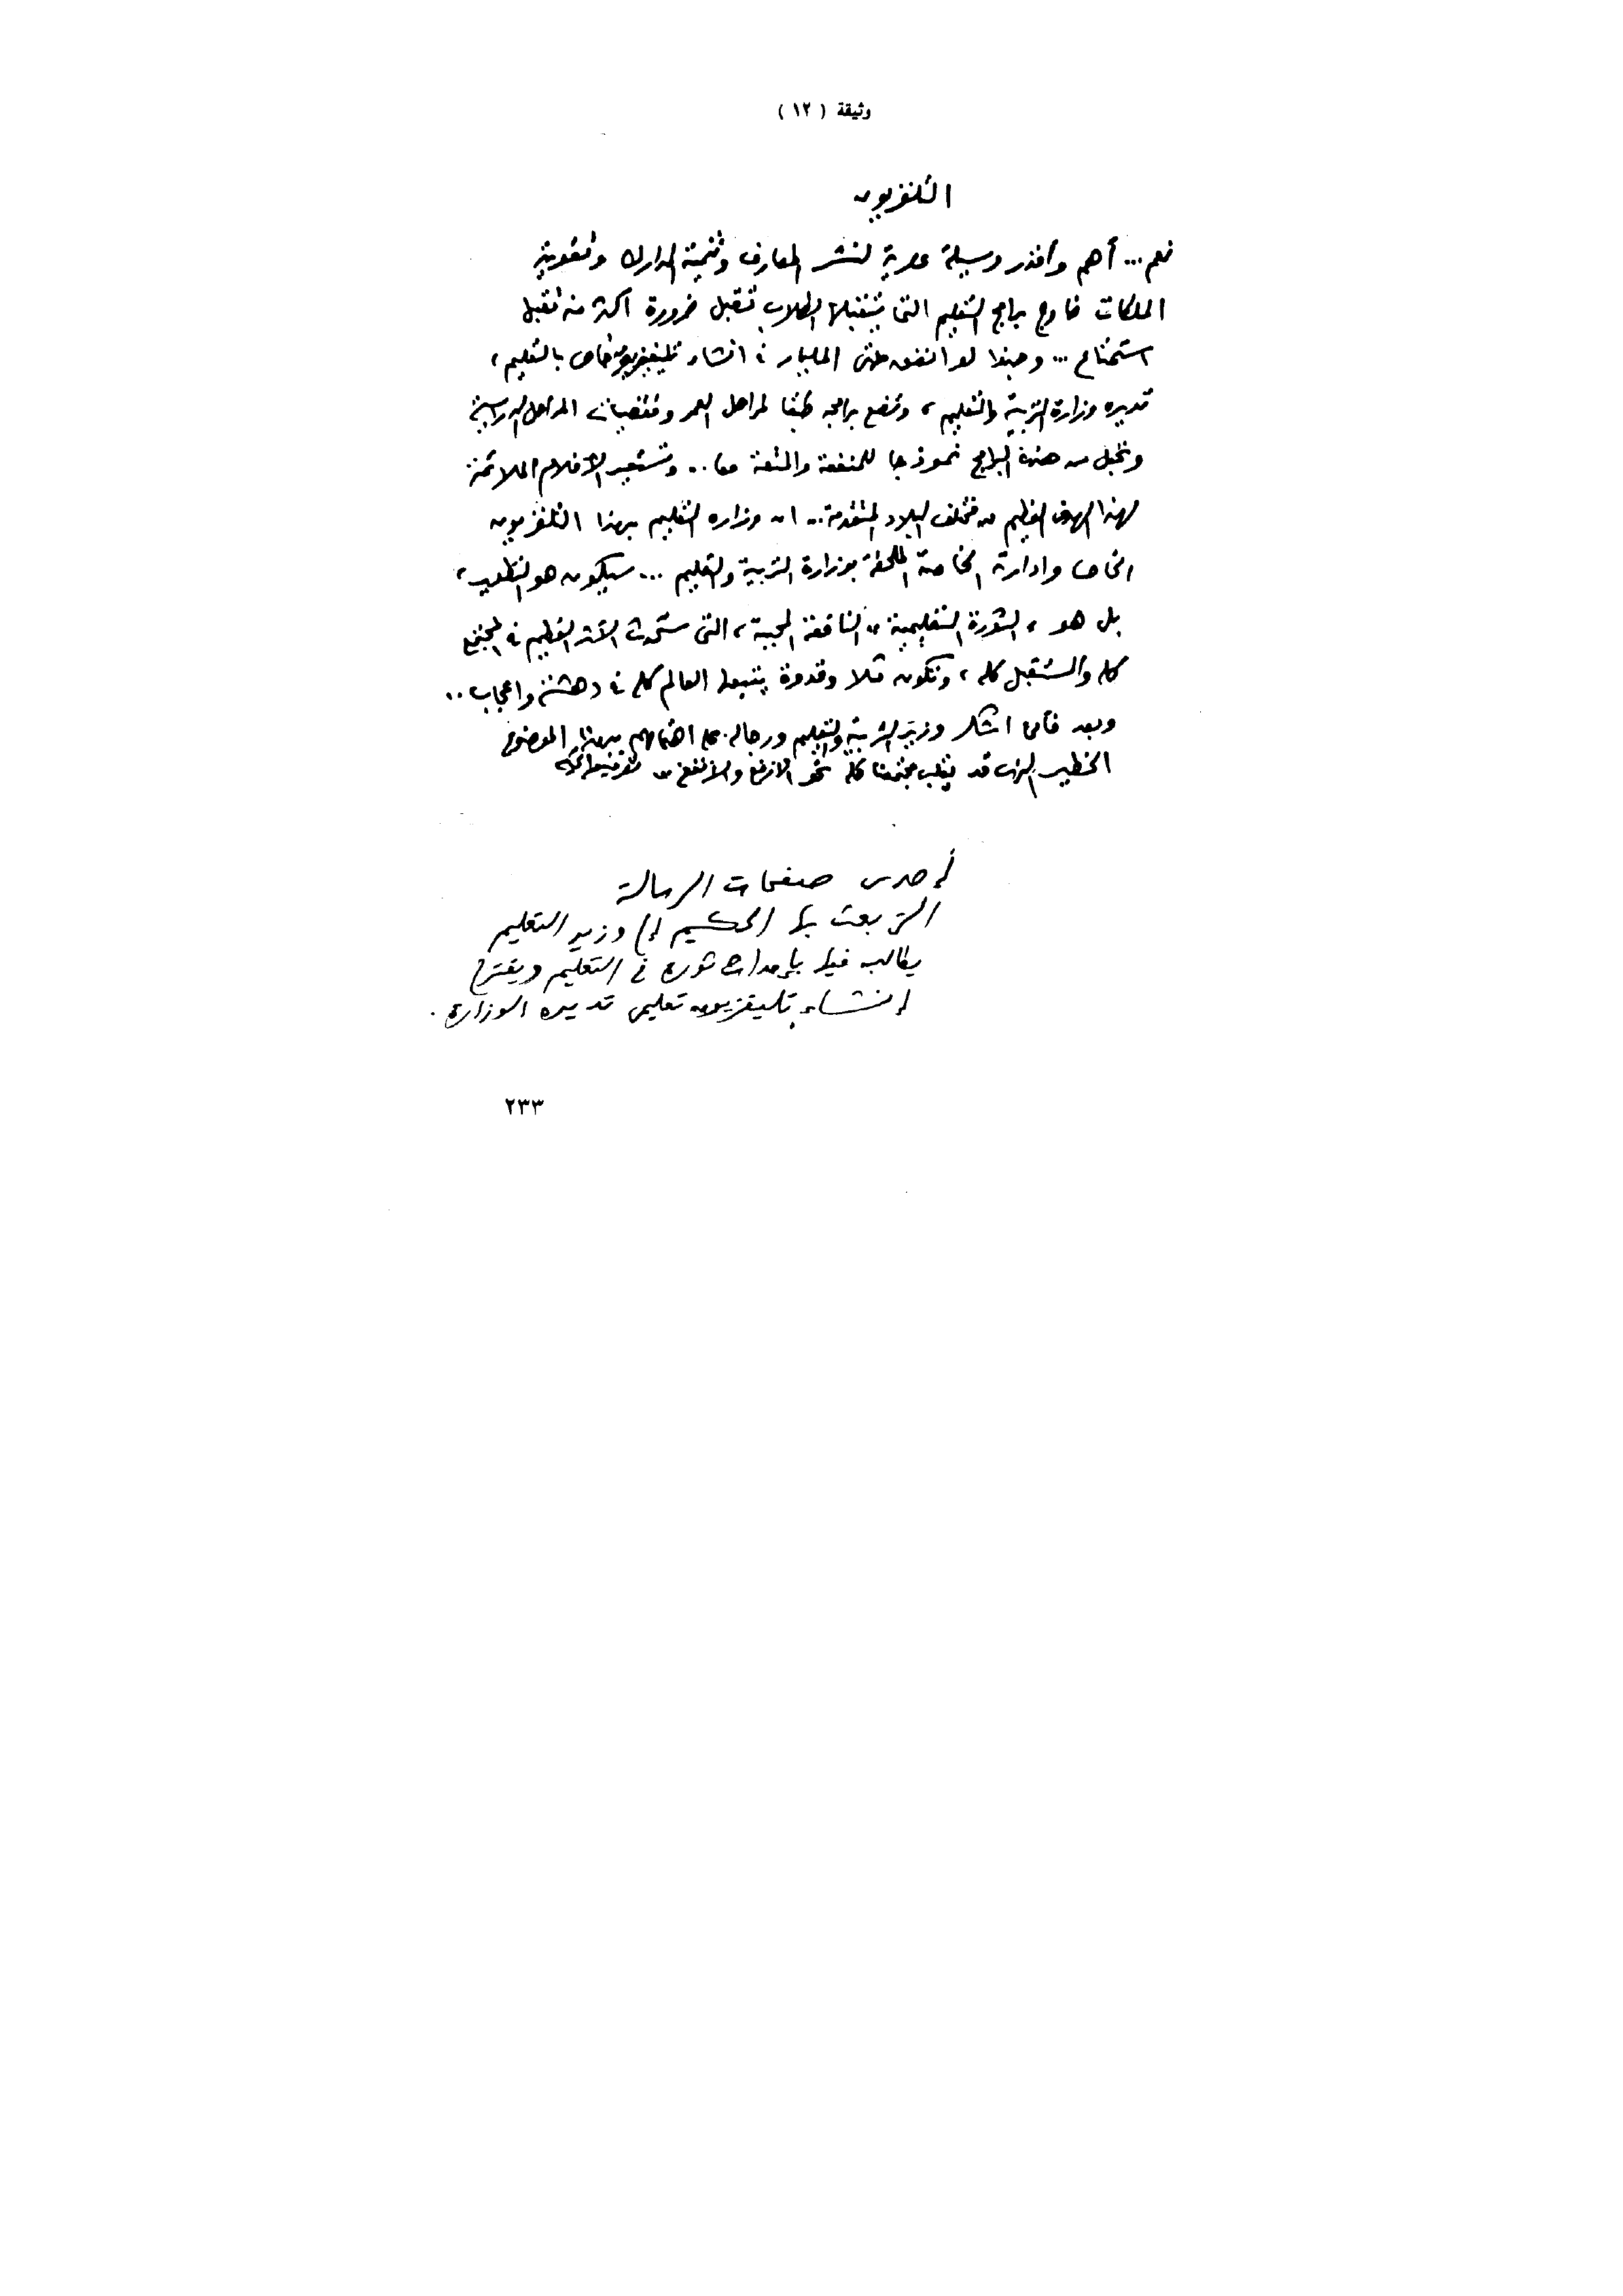 وثيقة ( ١٢ )
التلفزيون
نعم ... أهم وأقدر وسيلة عصرية لنشر المعارف وتنمية المدارك وتقوية
الملكات خارج برامج التعليم التى يتقبلها الطلاب تقبل ضرورة أكثر منه تقبل
استمتاع ... وحبذا لو انفق المليار فى انشاء تليفزيون خاص بالتعليم ،
تديره وزارة التربية والتعليم ، وتضع برامجه طبقا لمراحل العمر ومقتضيات المراحل الدراسية
وتجعل من هذه البرامج نموذجا للمنفعة والمتعة معا .. وتستعير الأفلام الملائمة
لهذا الهدف العظيم من مختلف البلاد المتقدمة .. ان وزارة التعليم بهذا التلفزيون
الخاص وادارته الخاصة الملحقة بوزارة التربية والتعليم ... سيكون هو التطوير ،
بل هو ، الثورة التعليمية ،، النافعة المحببة ، التى ستحدث الأثر العظيم فى المجتمع
كله والمستقبل كله ، وتكون مثلا وقدوة يتبعها العالم كله فى دهشة واعجاب ..
وبعد فأنى اشكر وزير التربية والتعليم ورجاله على اهتمامهم بهذا الموضوع
الخطير الذى قد يقلب مجتمعنا كله نحو الارفع والأنفع ..
إحدى صفحات الرسالة
التى بعث بها الحكيم إلى وزير التعليم
يطالب فيها بإحداث ثورة فى التعليم ويقترح
إنشاء تليفزيون تعليمى تديره الوزارة .
٢٣٣